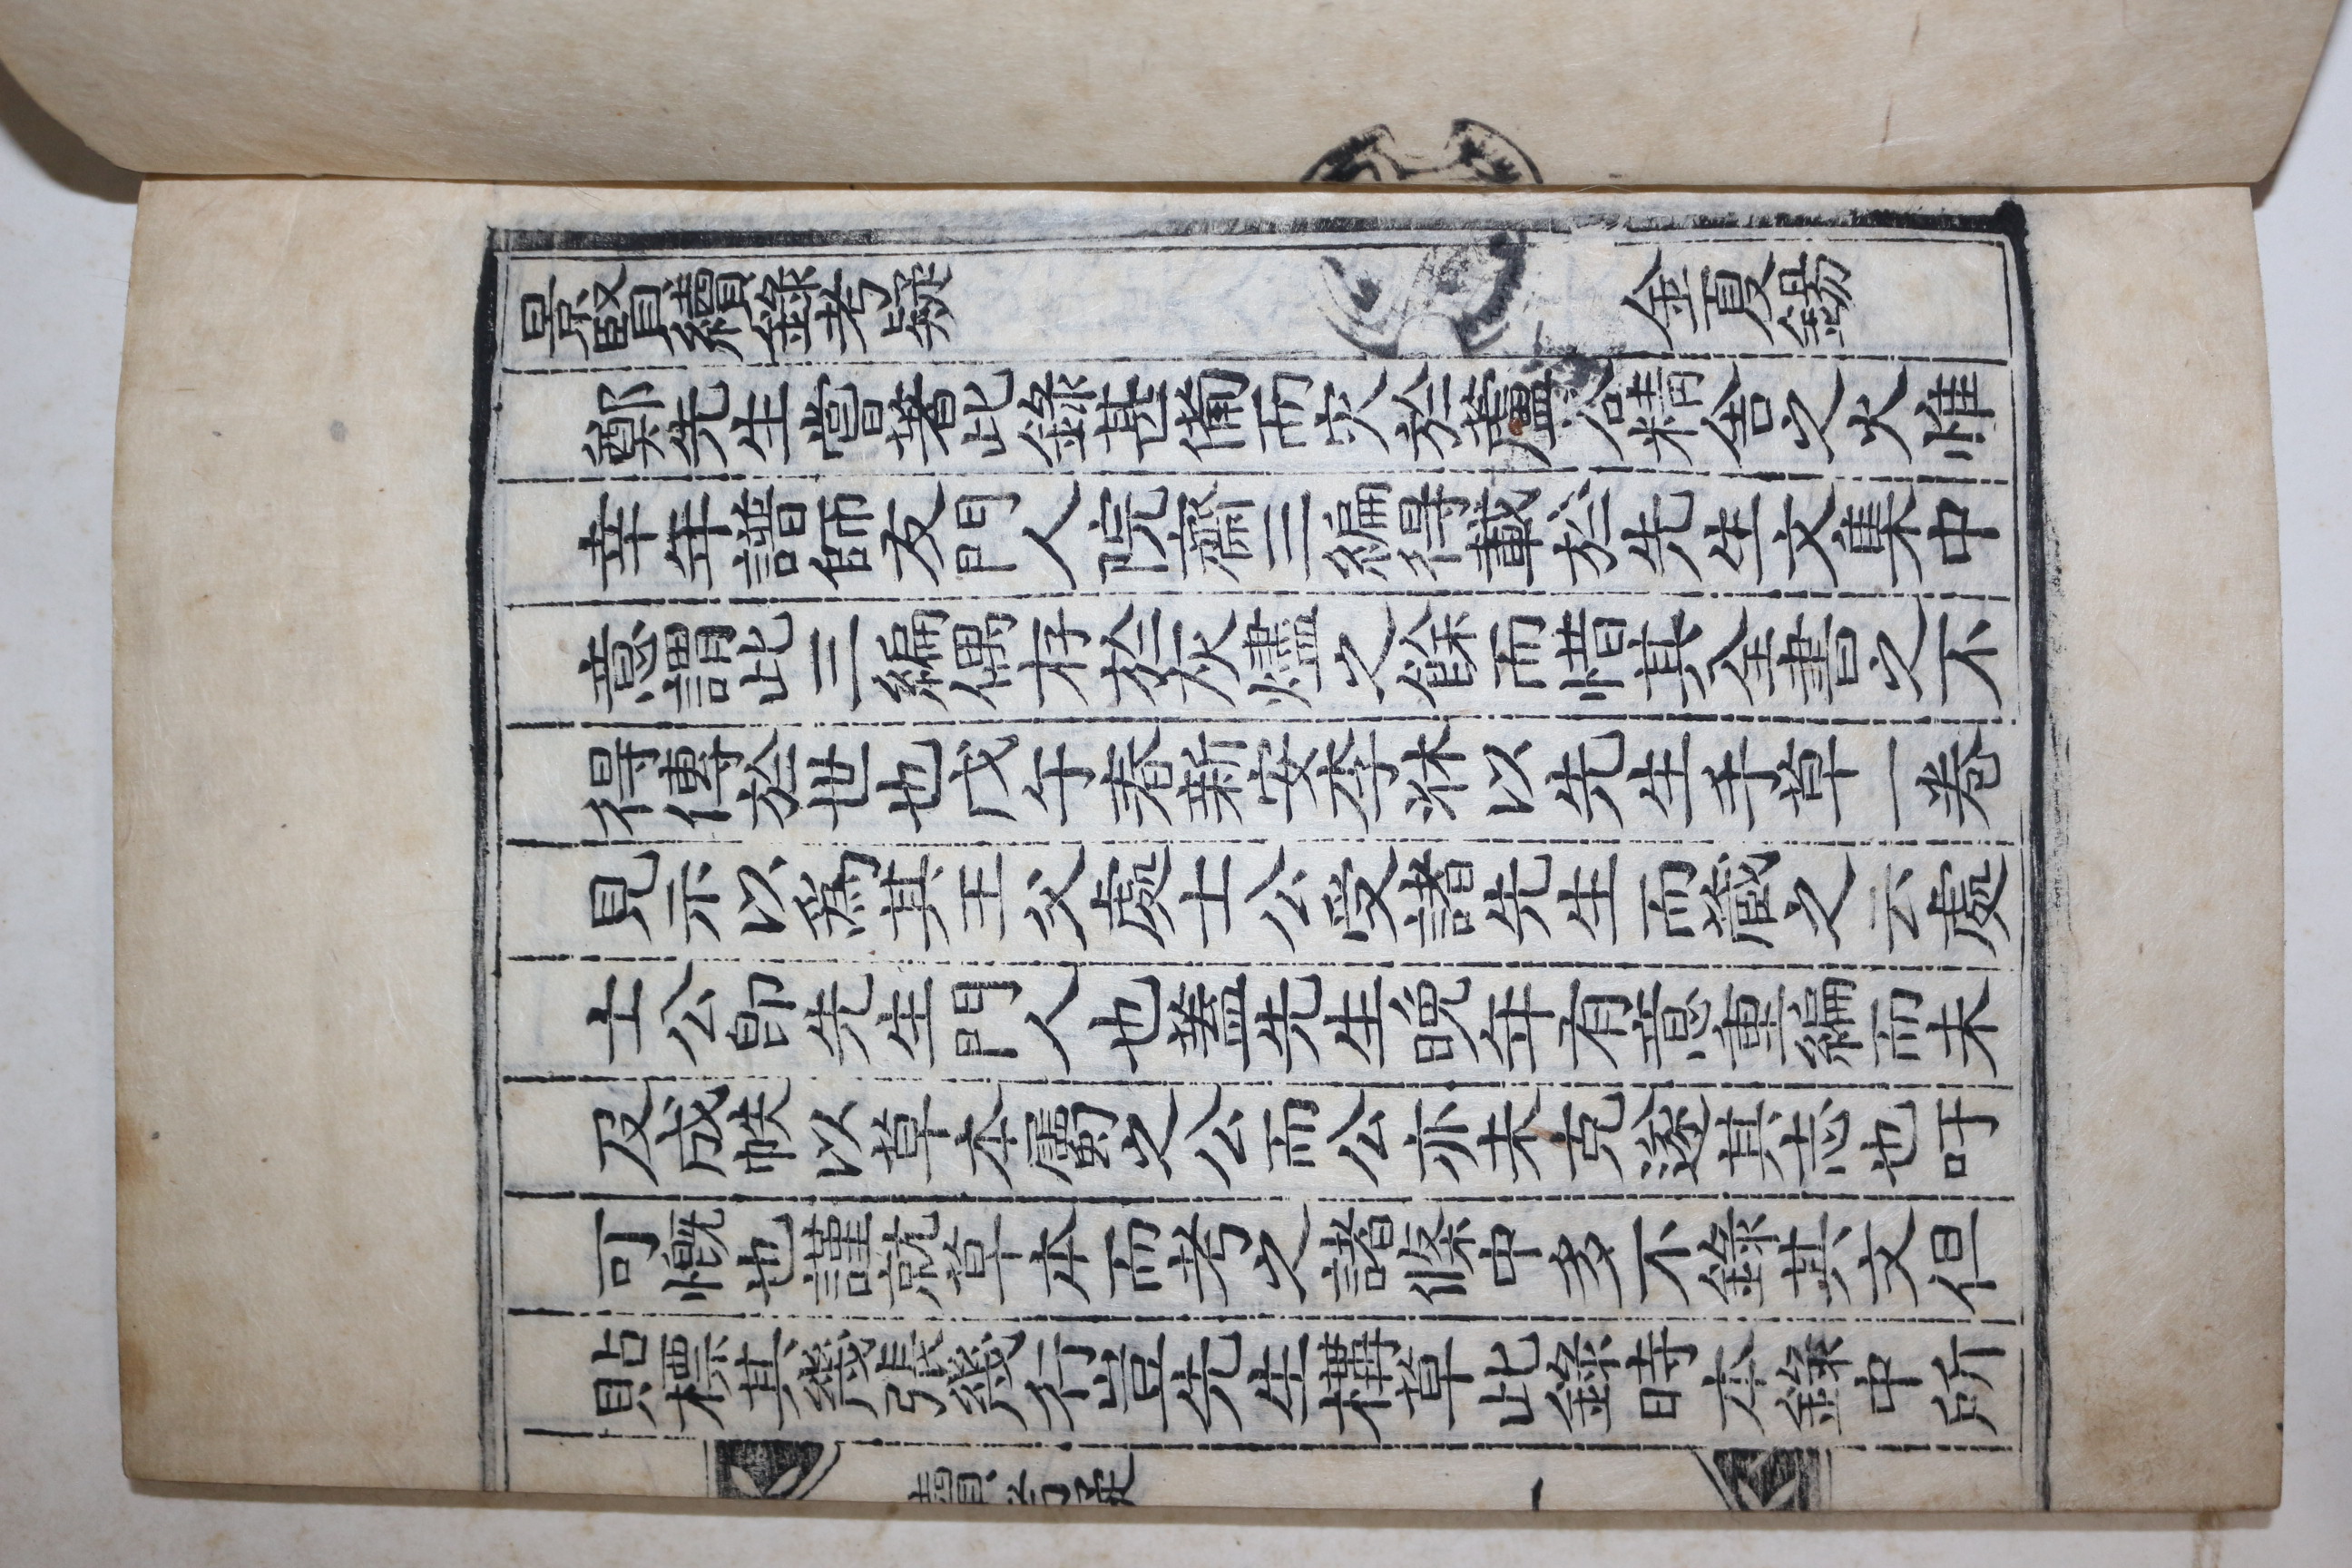 景賢續錄考疑 金夏錫
鄭先生嘗著此錄甚備而灾於蘆谷精舍之火惟
幸年譜師友門人院齋三編得載於先生文集中
意謂此三編偶存於灰燼之餘而惜其全書之不
得傳於世也戊午春新安李以先生手草一卷
見示以爲其王父處士公受諸先生而藏之云處
士公卽先生門人也蓋先生晚年有意重編而未
及成帙以草本屬之公而公亦未克遂其志也吁
可慨也謹就草本而考之諸條中多不錄其文但
貼標其幾張幾行豈先生構草此錄時本錄中所
續考疑 一